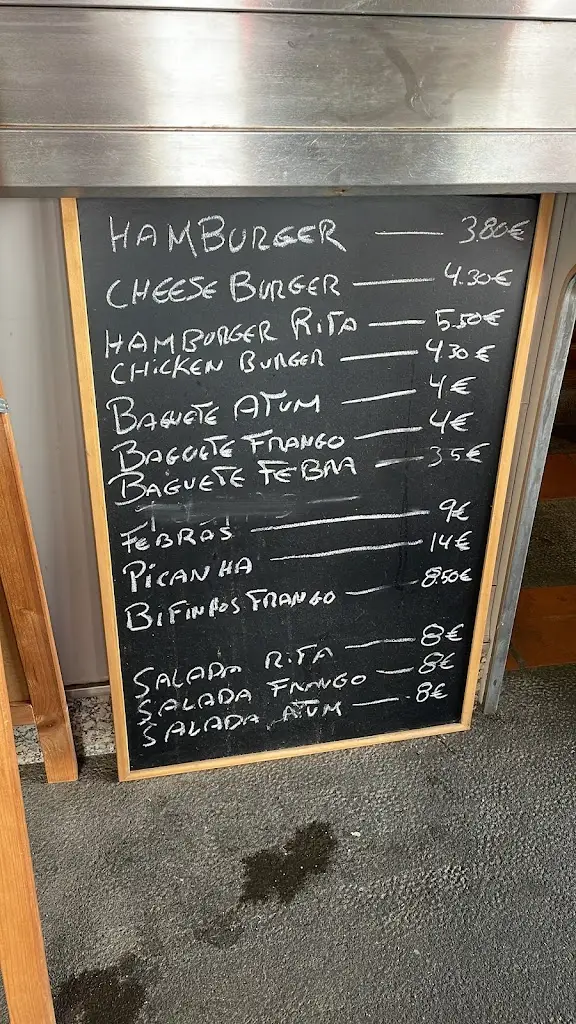 HAMBURGER — 3.80€
CHEESE BURGER — 4.30€
HAMBURGER RITA — 5.50€
CHICKEN BURGER — 4.30€
BAGUETE ATUM — 4€
BAGUETE FRANGO — 4€
BAGUETE FEBRA — 3.5€
FEBRAS — 9€
PICANHA — 14€
BIFINHOS FRANGO — 8.50€
SALADA RITA — 8€
SALADA FRANGO — 8€
SALADA ATUM — 8€